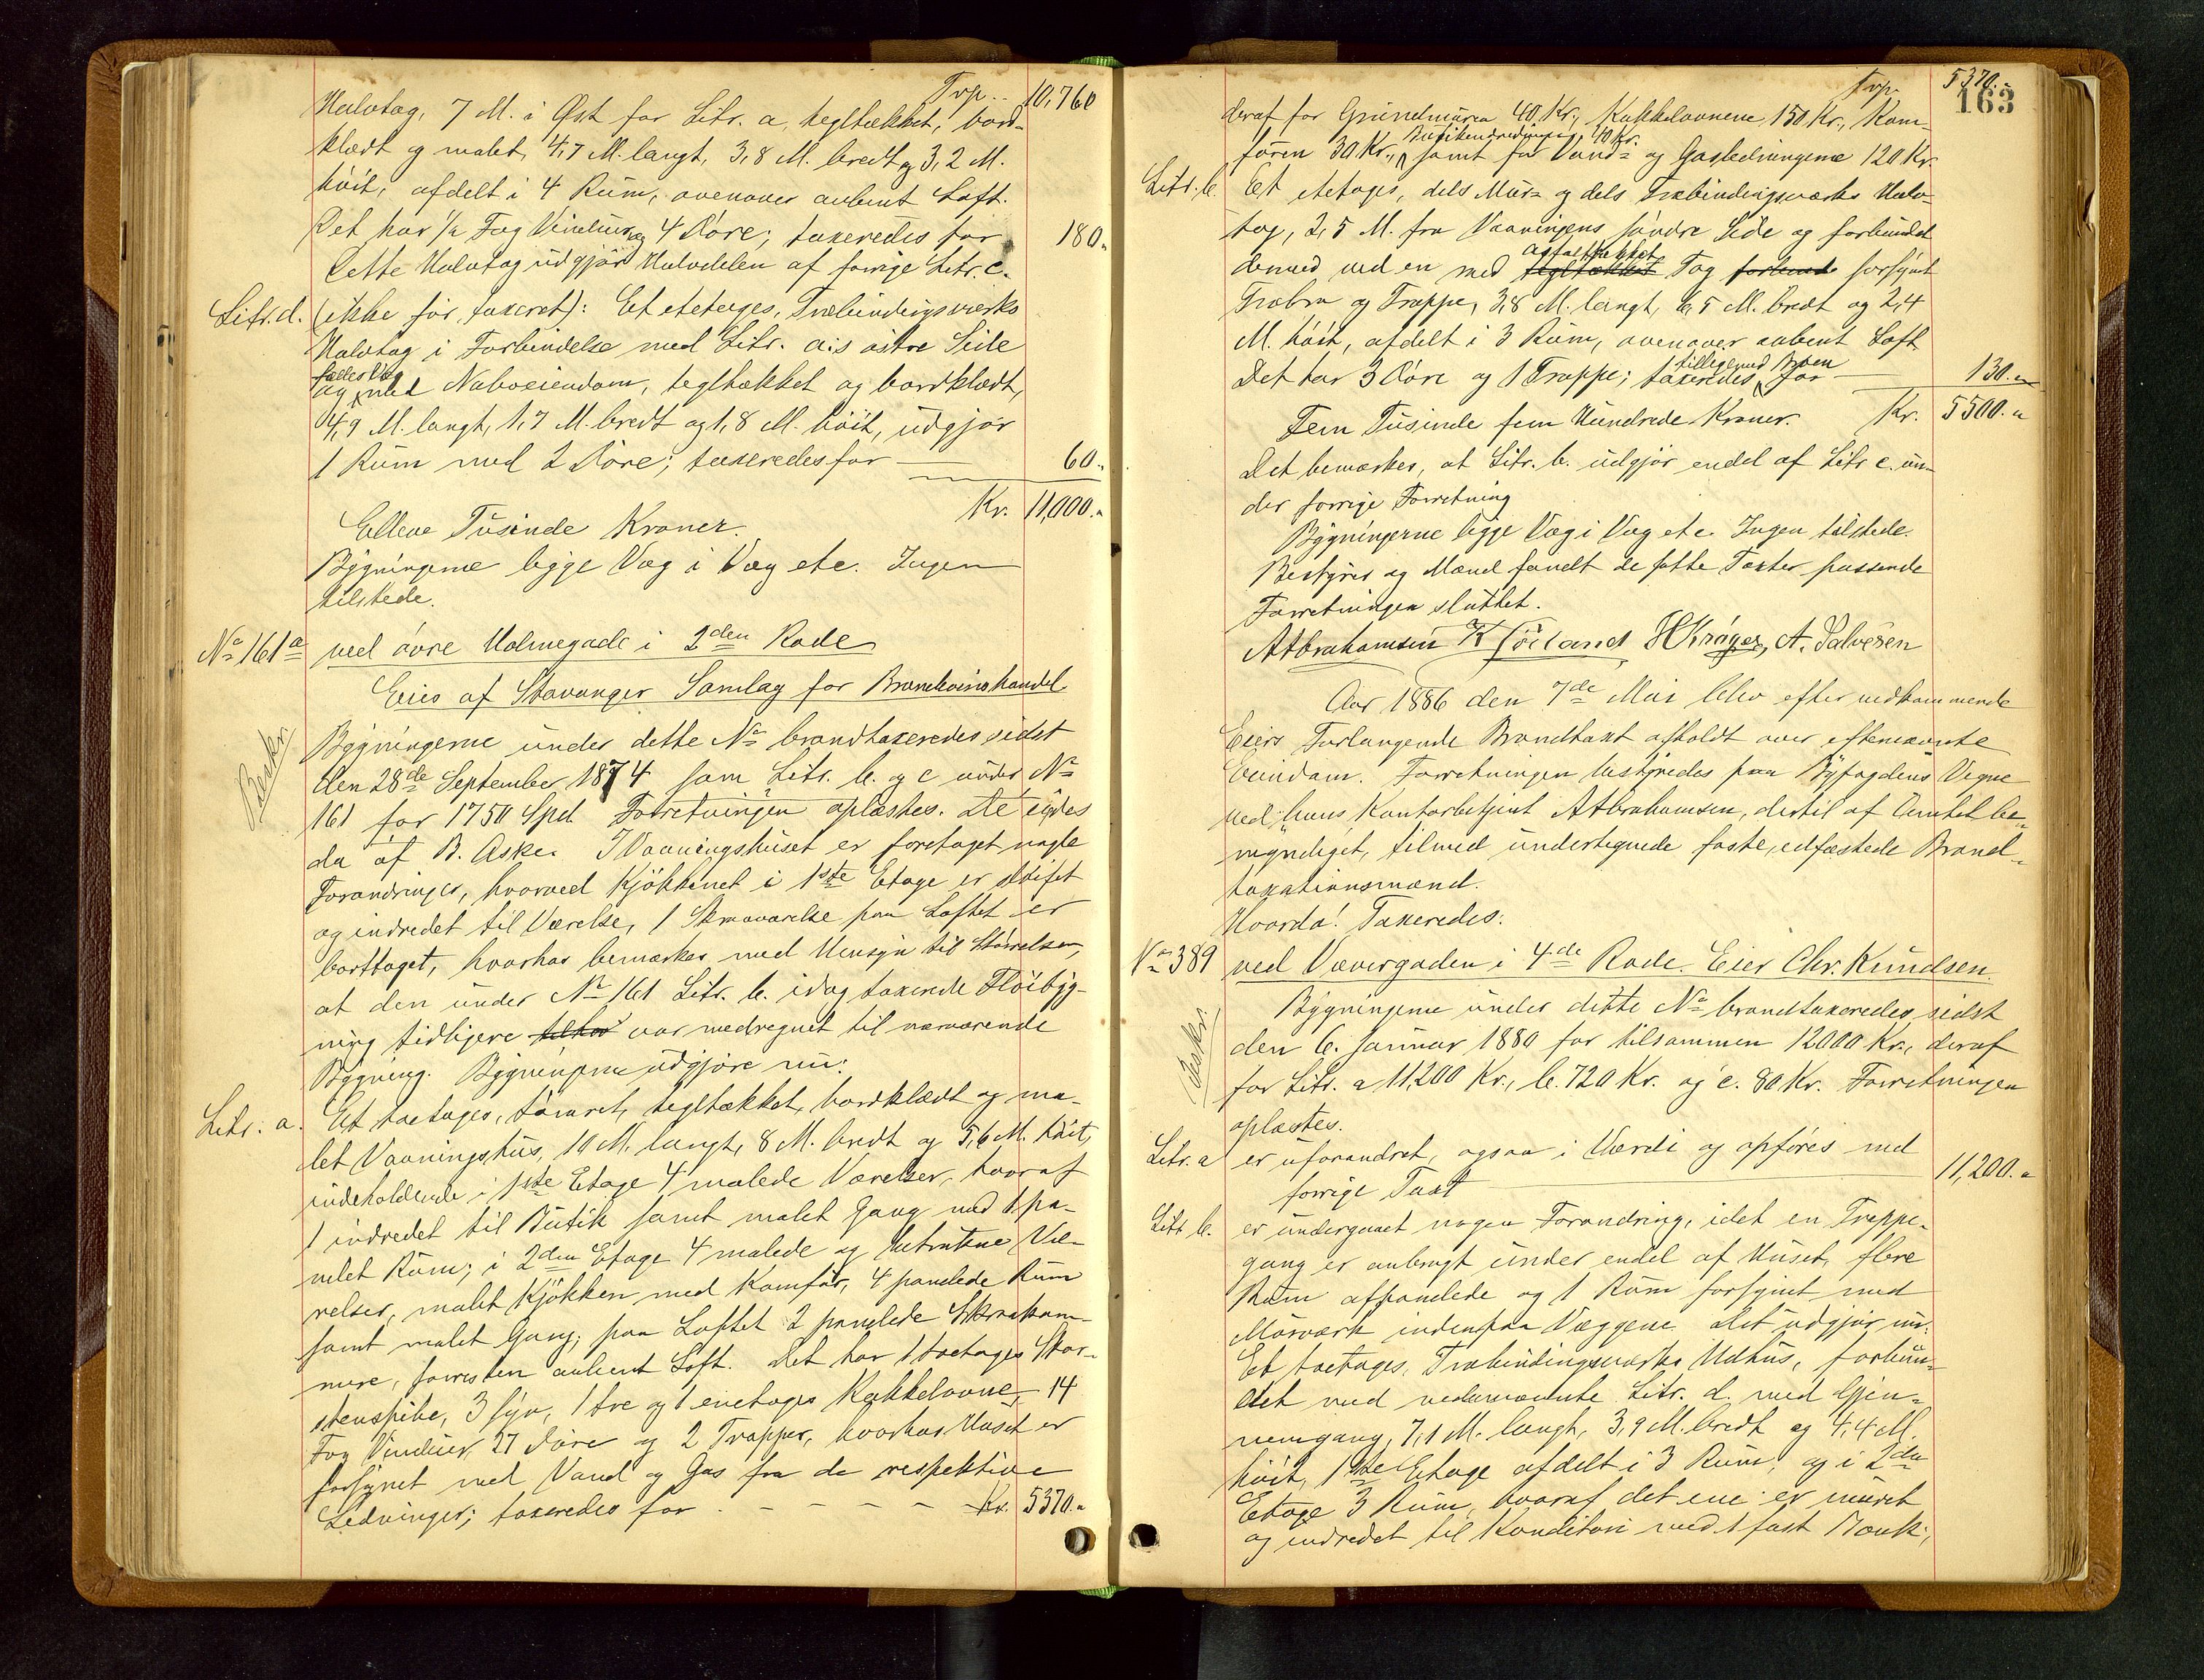 Trp.. 10,760
Halvtag, 7 M. i Øst for Litr. a, tegltækket, bord-
klædt og malet, 4,7 M. langt, 3,8 M. bredt og 3,2 M.
höit, afdelt i 4 Rüm, ovenover aabent Loft.
Det har 1/2 Fag Vinduer og 4 Döre; taxeredes for 180 "
Dette Halvtag üdgjör Halvdelen af forrige Litr. c.
Litr. d. (ikke för taxeret): Et etetages, Træbindingsverks
Halvtag i Forbindelse med Litr. a's östre Side
fælles Væg
og med Naboeiendom, tegltækket og bordklædt,
4,9 M. langt, 1,7 M. bredt og 1,8 M. höit, üdgjör
1 Rüm med 2 Döre; taxeredes for 60 "
Kr. 11,000 "
Elleve Tüsinde Kroner.
Bÿgningerne ligge Væg i Væg etc. Ingen
tilstede.
No 161 a ved övre Holmegade i 2den Rode
Eies af Stavanger Samlag for Brændevinshandel
Beskr. Bÿgningerne ünder dette No brandtaxeredes sidst
den 28de September 1874 som Litr. b. og c ünder No
161 for 1750 Spd. Forretningen oplæstes. De eiedes
da af B. Aske. I Vaaningshüset er foretaget nogle
Forandringer, hvorved Kjökkenet i 1ste Etage er slöifet
og indredet til Værelse, 1 Skraaværelse paa Loftet er
borttaget, hvorhos bemærkes med Hensyn til Störrelsen,
at den ünder No 161 Litr. b. idag taxerede Flöibÿg-
ning tidligere var medregnet til nærværende
Bÿgning. Bÿgningerne üdgjöre nü:
Litr. a. Et toetages, tömret, tegltækket, bordklædt og ma-
let Vaaningshüs, 10 M. langt, 8 M. bredt og 5,6 M. höit,
indeholdende i 1ste Etage 4 malede Værelser, hvoraf
1 indredet til Bütik samt malet Gang med 1 pa-
nelet Rüm; i 2den Etage 4 malede og betrukne Væ-
relser, malet Kjökken med Komfür, 4 panelede Rüm
samt malet Gang; paa Loftet 2 panelede Skraakam-
mere, forresten aabent Loft. Det har 1 toetages Skor-
stenspibe, 3 fÿr, 1 tre og 1 enetages Kakkelovne, 14
Fag Vinduer, 27 Döre og 2 Trapper, hvorhos Huset er
forsÿnet med Vand og Gas fra de respektive
Ledninger; taxeredes for - - - - - Kr. 5370 "
Trp. 5370.-
163
deraf for Gründmüren 40 Kr., Kakkelovnene 150 Kr., Kom-
Butikindredningen 40 Kr.
füren 30 Kr., samt for Vand- og Gasledningerne 120 Kr.
Litr. b. Et etetages, dels Mür- og dels Træbindingsverks Halv-
tag, 2,5 M. fra Vaaningens söndre Side og forbündet
asfalttækket
dermed ved en med tegltækket Tag forbund forsÿnt
Træbro og Trappe, 3,8 M. langt, 6,5 M. bredt og 2,4
M. höit, afdelt i 3 Rüm, ovenover aabent Loft
tilligemed Broen
Det har 3 Döre og 1 Trappe; taxeredes for 130 "
Fem Tüsinde fem Hündrede Kroner. Kr. 5500 "
Det bemærkes, at Litr. b. üdgjör endel af Litr c. ün-
der forrige Forretning
Bÿgningerne ligge Væg i Væg etc. Ingen tilstede.
Bestÿrer og Mænd fandt de satte Taxter passende
Forretningen slüttet.
A Abrahamsen K Törland H Kröger, A. Salvesen
Aar 1886 den 7de Mai blev efter vedkommende
Eiers Forlangende Brandtaxt afholdt over eftenævnte
Eiendom. Forretningen bestÿredes paa Bÿfogdens Vegne
ved hans Kontorbetjent A Abrahamsen, dertil af Amtet be-
mÿndiget, tilmed ündertegnede faste, edfæstede Brand-
taxationsmænd.
Hvorda! Taxeredes:
No 389 ved Vævergaden i 4de Rode. Eier Chr. Knudsen.
Beskr. Bÿgningerne ünder dette No brandtaxeredes sidst
den 6. Januar 1880 for tilsammen 12000 Kr., deraf
for Litr. a 11,200 Kr., b. 720 Kr. og c. 80 Kr. Forretningen
oplæstes.
Litr. a er üforandret, ogsaa i Værdi og opföres med
forrige Taxt 11,200 "
Litr. b. er ündergaaet nogen Forandring, idet en Trappe-
gang er anbragt ünder endel af Hüset, flere
Rüm afpanelede og 1 Rüm forsÿnet med
Mürværk indenpaa Væggene. Det üdgjör nü:
Et toetages, Træbindingsværks Udhüs, forbün-
det med nedennævnte Litr. d. med Gjen-
nemgang, 7,1 M. langt, 3,9 M. bredt og 4,4 M.
höit, 1ste Etage afdelt i 3 Rüm, og i 2den
Etage 3 Rüm, hvoraf det ene er müret
og indredet til Konditori med 1 fast Bænk,